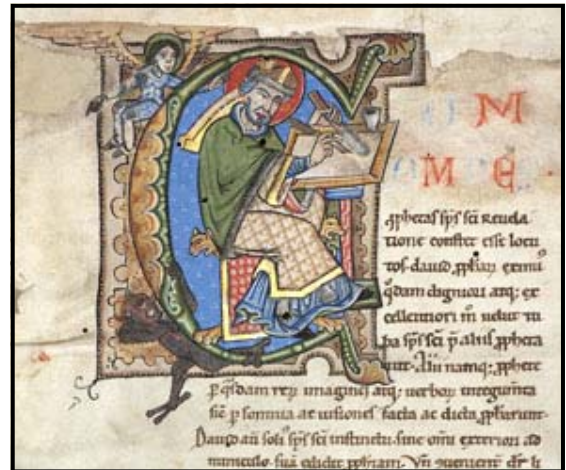 M
M E
pphetas sps sci Reuela
tione constet esse locu
tos. dauid pphar eximi
qdam digniori atq; ex
cellentiori m uelut tu
ba sps sci p aliis pphera
uit. Alii namq; pphete
p qsdam rerum imagines atq; uerbor integumta
sic p somnia ac uisiones facta ac dicta ppharunt.
Dauid aut soli sps sci instinctu sine omi exteriori ad
miniculo sua edidit pphiam. Vn uenient dr li